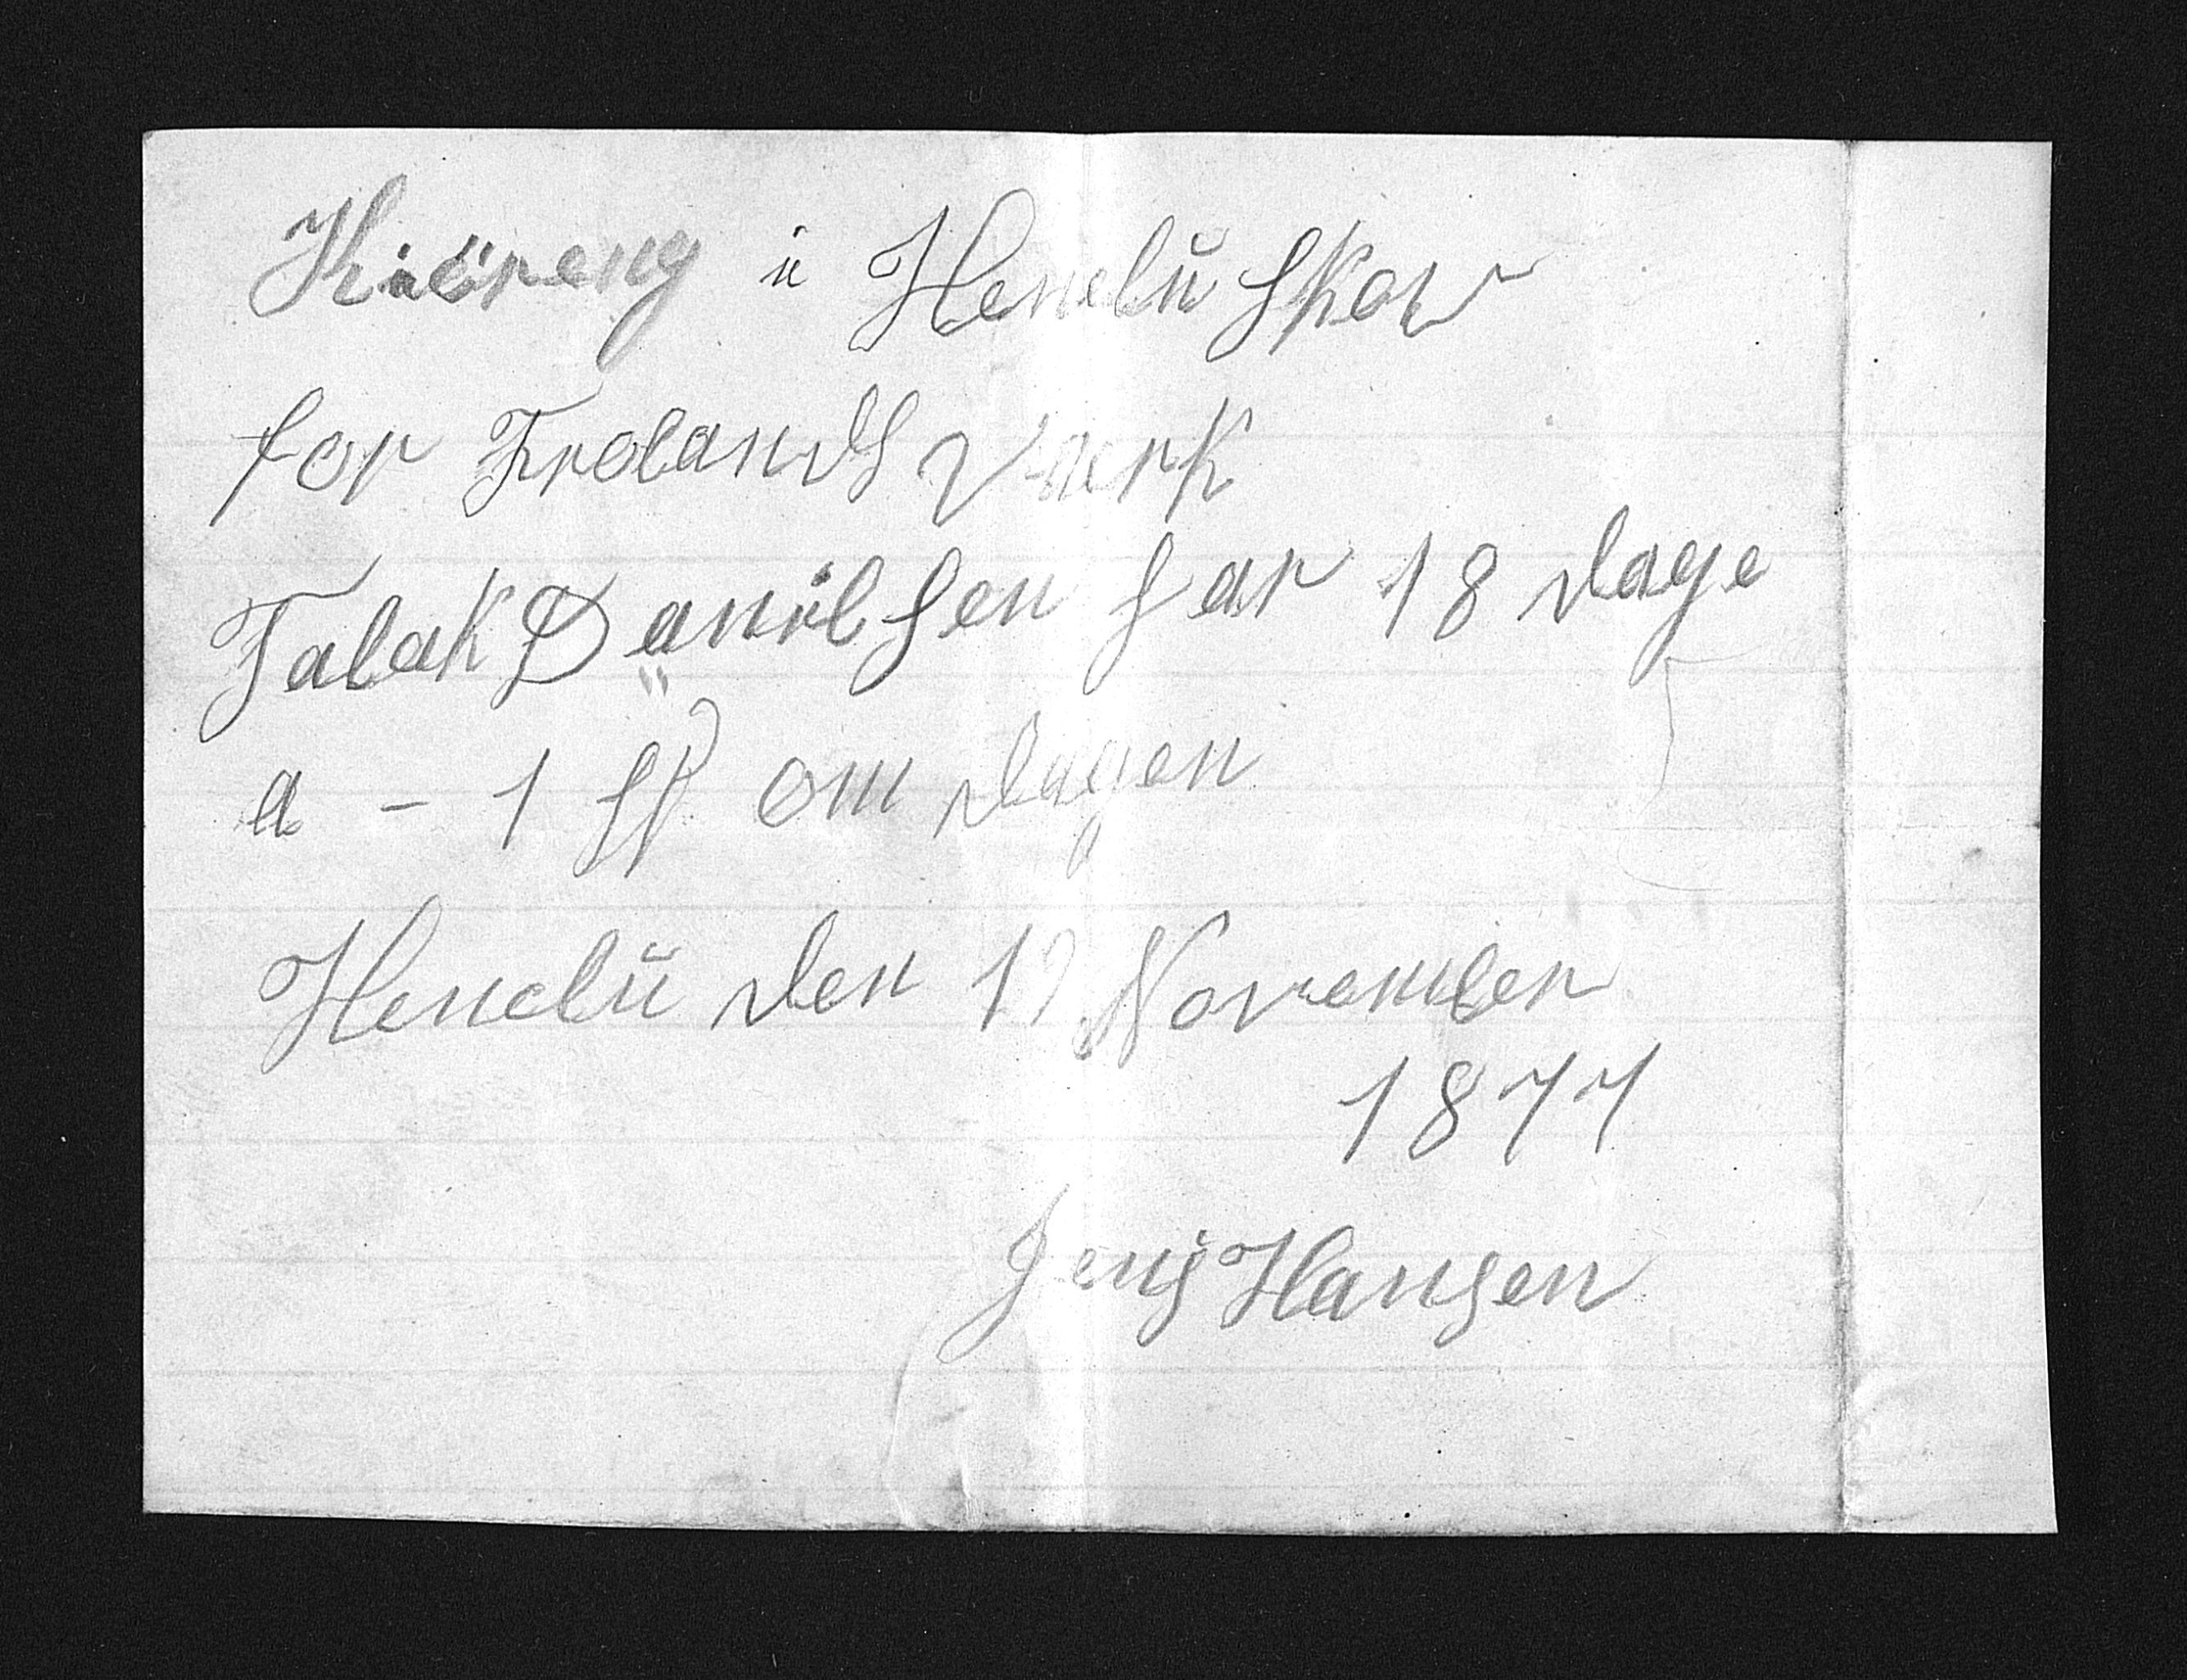 Kiöreng i Heneliï skov
for Frolands værk
Talak Danilsen har 18 dage
a - 1 sp om dagen
Heneliï den 19 November
1877
Jens Hansen